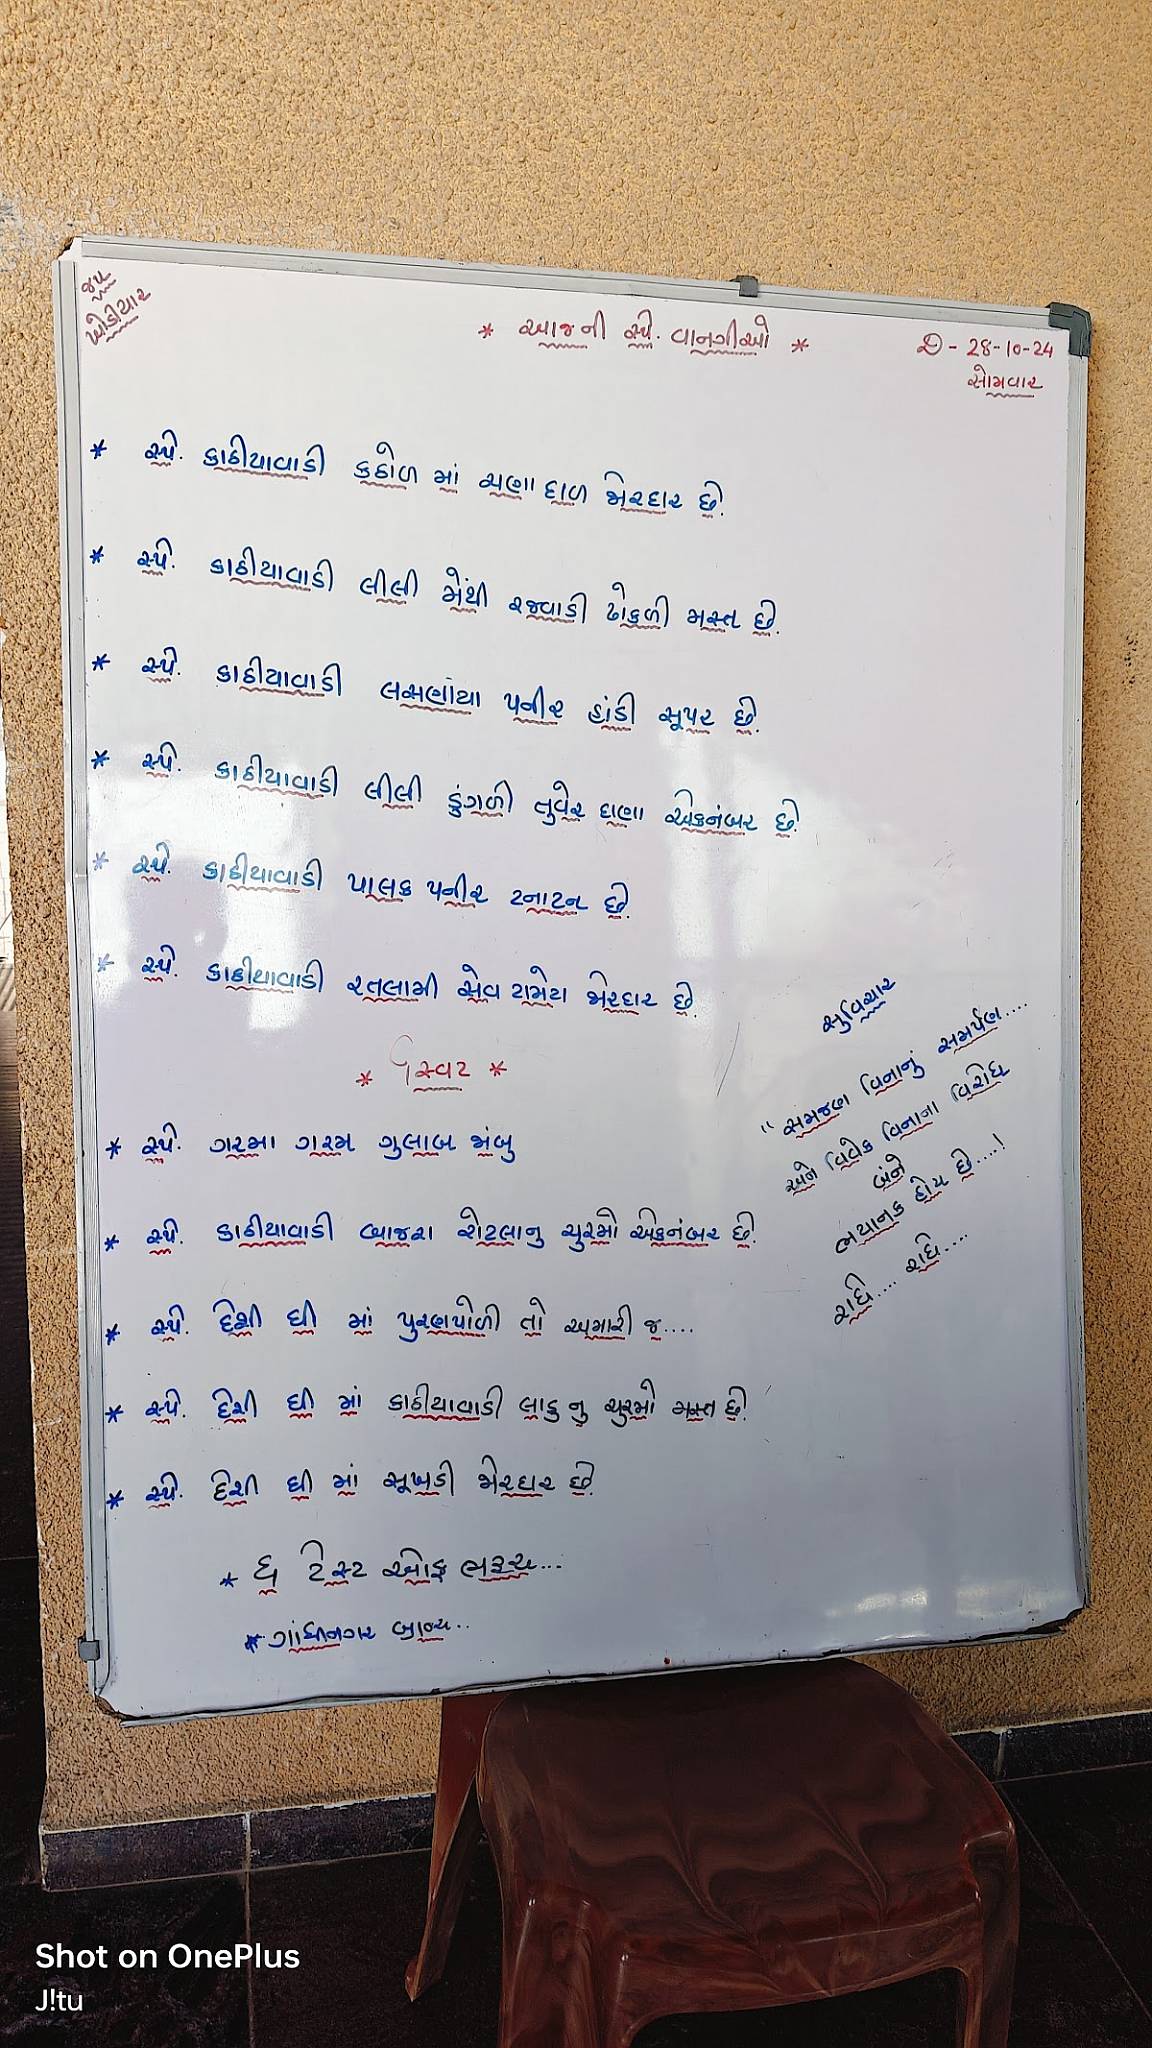 જય
ખોડીયાર
* આજ ની સ્પે. વાનગીઓ *
D - 28-10-24
સોમવાર
* સ્પે. કાઠીયાવાડી કઠોળ માં ચણા દાળ જોરદાર છે.
* સ્પે. કાઠીયાવાડી લીલી મેંથી રજવાડી ઢોકળી મસ્ત છે.
* સ્પે. કાઠીયાવાડી લસણીયા પનીર હાંડી સૂપર છે.
* સ્પે. કાઠીયાવાડી લીલી ડુંગળી તુવેર દાણા એકનંબર છે.
* સ્પે. કાઠીયાવાડી પાલક પનીર ટનાટન છે.
* સ્પે. કાઠીયાવાડી રતલામી સેવ ટામેટા જોરદાર છે.
* સ્વીટ *
* સ્પે. ગરમા ગરમ ગુલાબ જાંબુ
* સ્પે. કાઠીયાવાડી બાજરા રોટલાનુ ચુરમો એકનંબર છે.
* સ્પે. દેશી ઘી માં પુરણપોળી તો અમારી જ....
* સ્પે. દેશી ઘી માં કાઠીયાવાડી લાડુ નુ ચુરમો મસ્ત છે.
* સ્પે. દેશી ઘી માં સૂખડી જોરદાર છે.
* ધ ટેસ્ટ ઓફ ભરૂચ...
* ગાંધીનગર બ્રાન્ચ..
સુવિચાર
"સમજણ વિનાનું સમર્પણ....
અને વિવેક વિનાના વિરોધ
બંને
ભયાનક હોય છે....!
રાધે.... રાધે....
Shot on OnePlus
J!tu